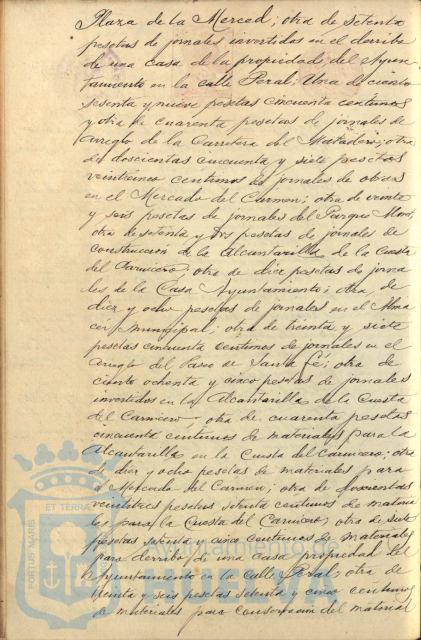 Plaza de la Merced; otra de setenta
pesetas de jornales invertidos en el derribo
de una casa de la propiedad del Ayun-
tamiento en la calle Peral; Una de ciento
sesenta y nueve pesetas cincuenta centimos
y otra de cuarenta pesetas de jornales de
arreglo de la Carretera del Matadero; otra
de doscientas cincuenta y siete pesetas
veinticinco centimos de jornales de obras
en el Mercado del Carmen; otra de veinte
y seis pesetas de jornales del Parque
otra de setenta y tres pesetas de jornales de
construcción de la Alcantarilla de la Cuesta
del Carnicero; otra de diez pesetas de jorna
les de la Casa Ayuntamiento; otra de
diez y ocho pesetas de jornales en el Alma
cén Municipal; otra de treinta y siete
pesetas cincuenta centimos de jornales en el
arreglo del Paseo de Santa Fé; otra de
ciento ochenta y cinco pesetas de jornales
invertidos en la Alcantarilla de la Cuesta
del Carnicero; otra de cuarenta pesetas
cincuenta centimos de materiales para la
Alcantarilla en la Cuesta del Carnicero; otra
de diez y ocho pesetas de materiales para
el Mercado del Carmen; otra de doscientas
veintitres pesetas setenta centimos de materia
les para la Cuesta del Carnicero; otra de siete
pesetas setenta y cinco centimos de materiales
para derribo de una casa propiedad del
Ayuntamiento en la calle Peral; otra de
treinta y seis pesetas setenta y cinco centimos
de materiales para conservación del material
PORTUS MARIS
ET TERRAE
Ayuntamiento de